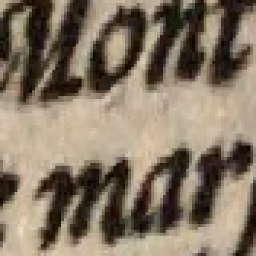 Mont
mar